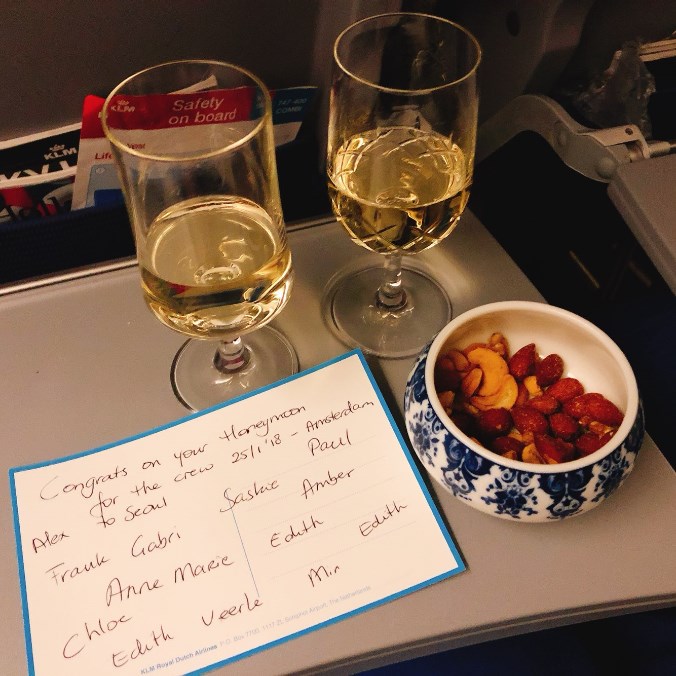 KLM
Safety
on board
747-400
COMBI
KLM
Congrats on your Honeymoon
for the crew 25/1'18 - Amsterdam
to Seoul
Alex
Saskie
Paul
Frank
Gabri
Amber
Anne Marie
Edith
Edith
Chloe
Edith
Veerle
Min
KLM Royal Dutch Airlines P.O. Box 7700, 1117 ZL Schiphol Airport, The Netherlands